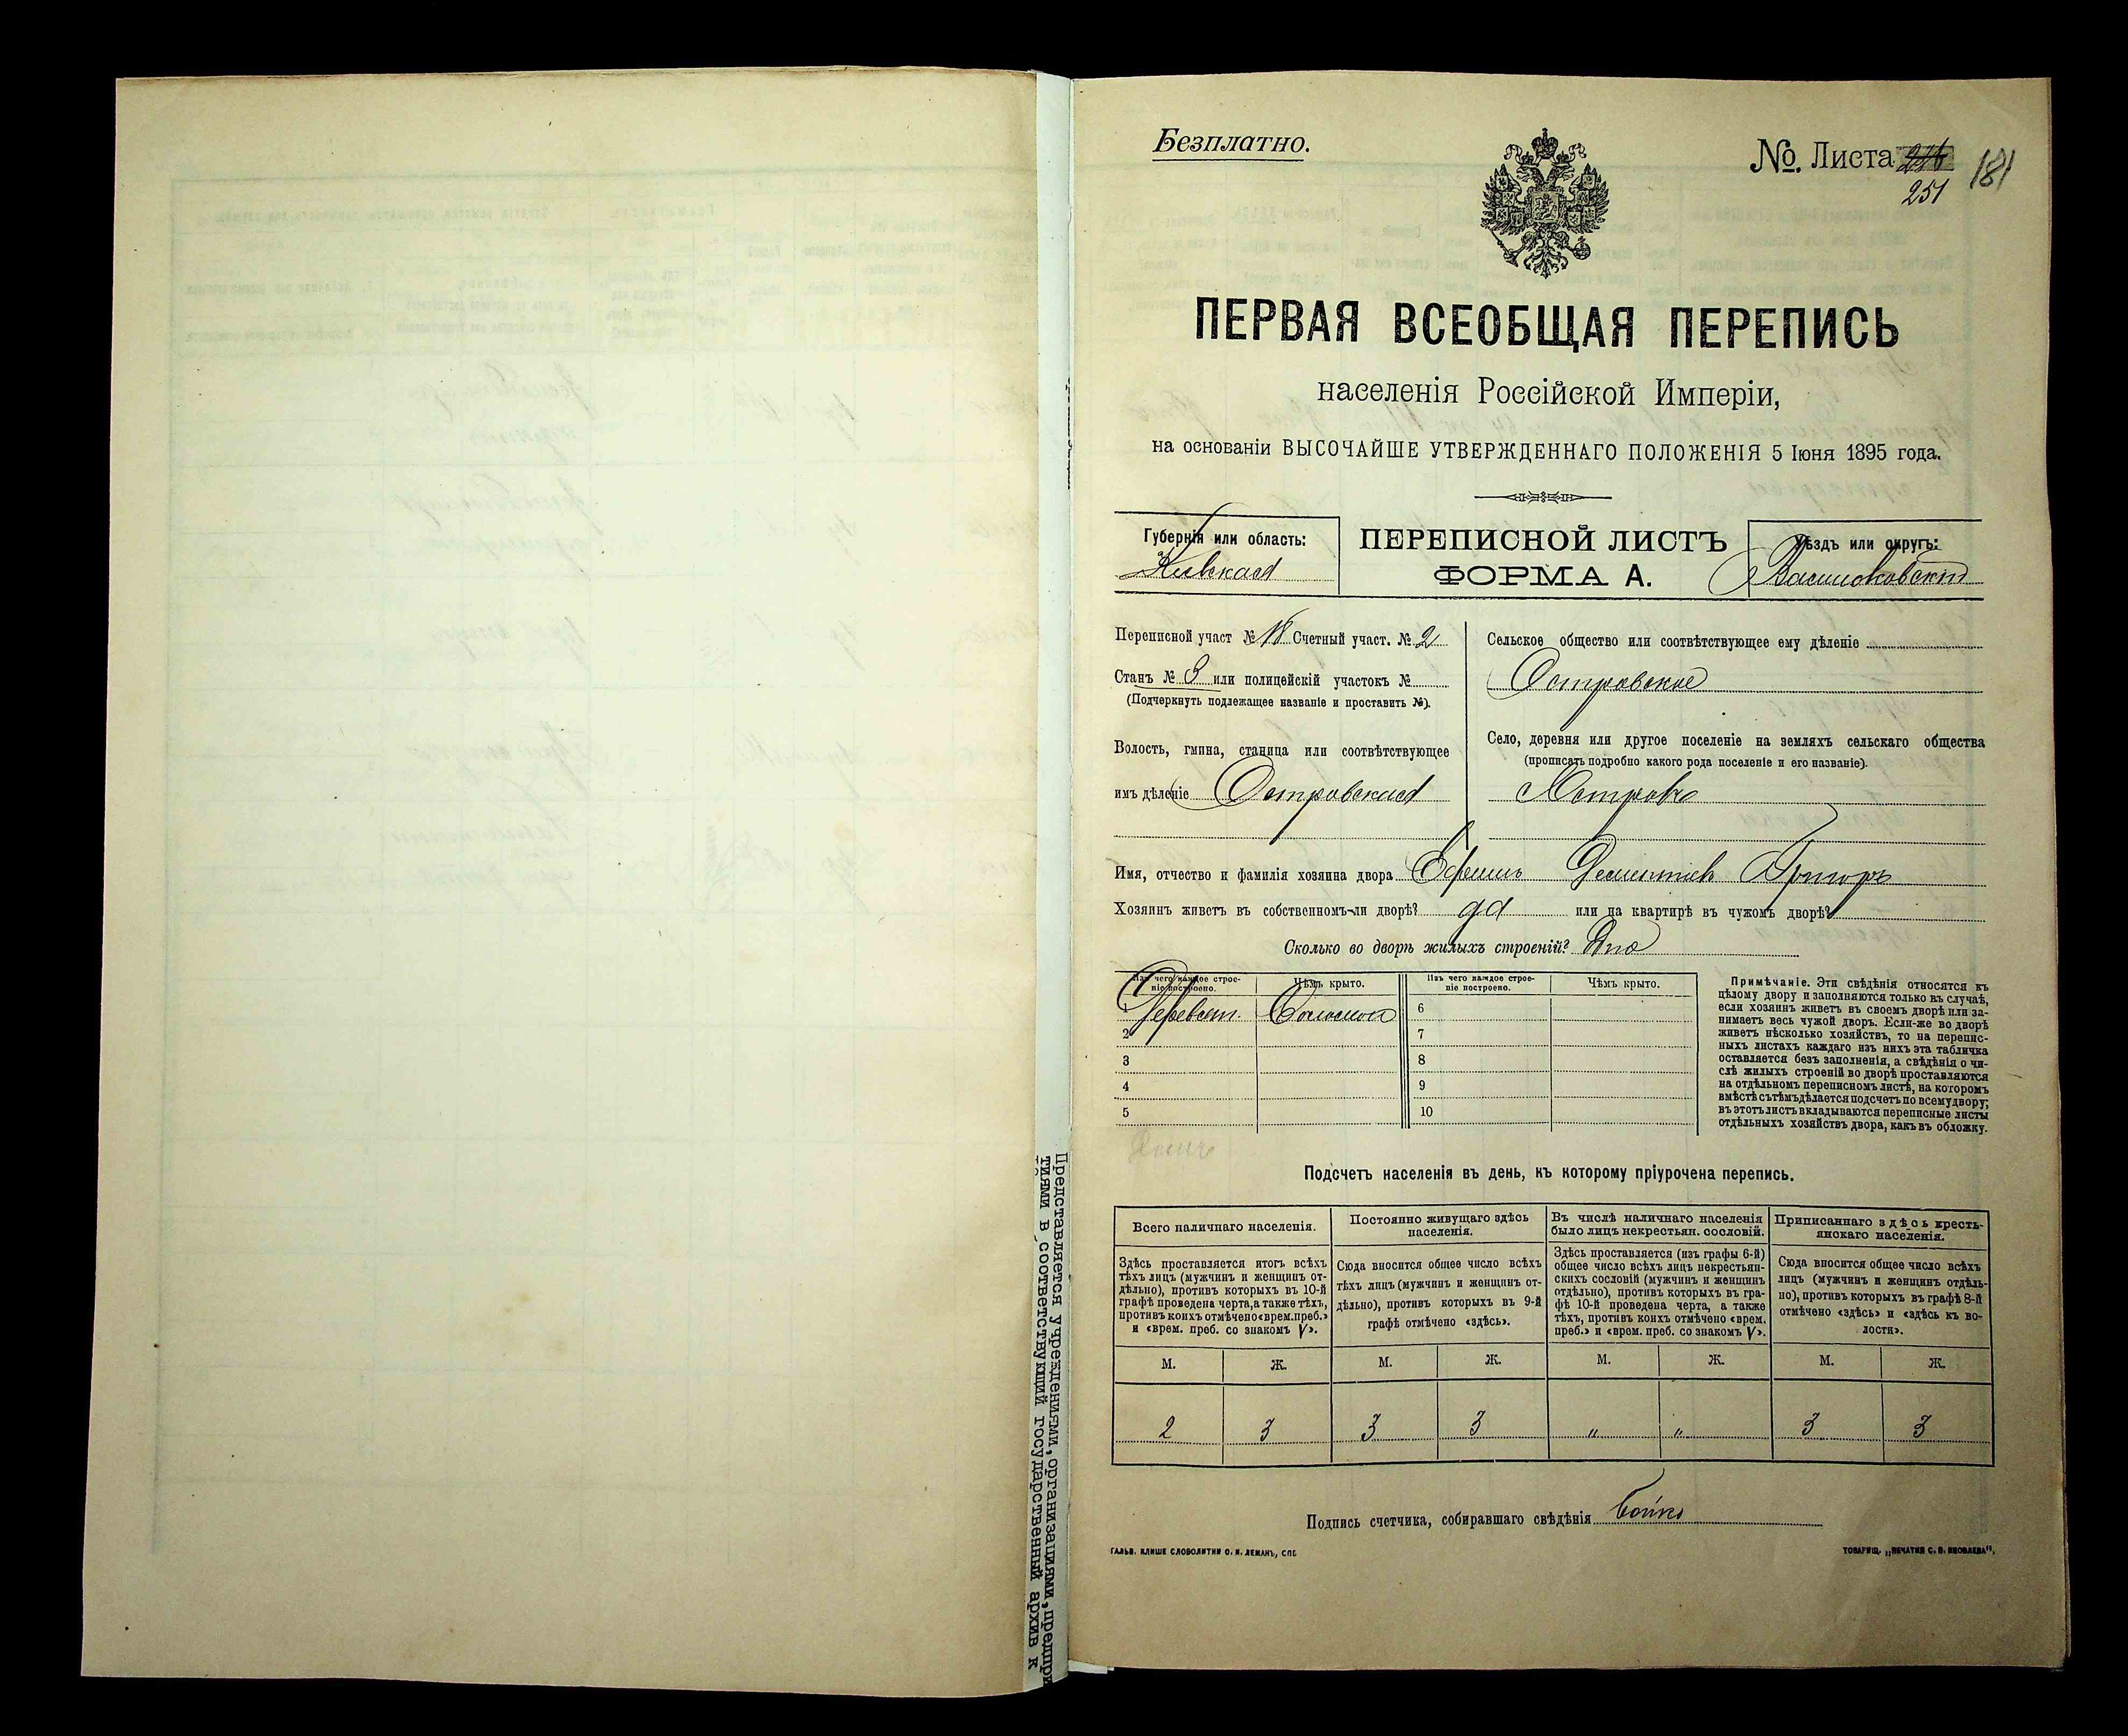 Безплатно.
№. Листа 216 181
251
ПЕРВАЯ ВСЕОБЩАЯ ПЕРЕПИСЬ
населенія Россійской Имперіи,
на основаніи ВЫСОЧАЙШЕ УТВЕРЖДЕННАГО ПОЛОЖЕНІЯ 5 Іюня 1895 года.
Губернія или область:
Кіевская
ПЕРЕПИСНОЙ ЛИСТЪ
ФОРМА А.
Уѣздъ или округъ:
Васильковскій
Переписной участ № 18 Счетный участ. № 2
Станъ № 3 или полицейскій участокъ №
(Подчеркнуть подлежащее названіе и проставить №).
Волость, гмина, станица или соотвѣтствующее
имъ дѣленіе Островская
Сельское общество или соотвѣтствующее ему дѣленіе
Островское
Село, деревня или другое поселеніе на земляхъ сельскаго общества
(прописать подробно какого рода поселеніе и его названіе).
Имя, отчество и фамилія хозяина двора Ефимъ
Хозяинъ живетъ въ собственномъ-ли дворѣ? да или на квартирѣ въ чужомъ дворѣ?
Сколько во дворѣ жилыхъ строеній?
Изъ чего каждое строе-
ніе построено.
Чѣмъ крыто.
Изъ чего каждое строе-
ніе построено.
Чѣмъ крыто.
1 Деревян. Соломой 6
2 7
3 8
4 9
5 10
Примѣчаніе. Эти свѣдѣнія относятся къ
цѣлому двору и заполняются только въ случаѣ,
если хозяинъ живетъ въ своемъ дворѣ или за-
нимаетъ весь чужой дворъ. Если-же во дворѣ
живетъ нѣсколько хозяйствъ, то на перепис-
ныхъ листахъ каждаго изъ нихъ эта табличка
оставляется безъ заполненія, а свѣдѣнія о чи-
слѣ жилыхъ строеній во дворѣ проставляются
на отдѣльномъ переписномъ листѣ, на которомъ
вмѣстѣ съ тѣмъ дѣлается подсчетъ по всему двору;
въ этотъ листъ вкладываются переписные листы
отдѣльныхъ хозяйствъ двора, какъ въ обложку.
Подсчетъ населенія въ день, къ которому пріурочена перепись.
Всего наличнаго населенія.
Постоянно живущаго здѣсь
населенія.
Въ числѣ наличнаго населенія
было лицъ некрестьян. сословій.
Приписаннаго здѣсь кресть-
янскаго населенія.
Здѣсь проставляется итогъ всѣхъ
тѣхъ лицъ (мужчинъ и женщинъ от-
дѣльно), противъ которыхъ въ 10-й
графѣ проведена черта, а также тѣхъ,
противъ коихъ отмѣчено «врем. преб.»
и «врем. преб. со знакомъ V».
Сюда вносится общее число всѣхъ
тѣхъ лицъ (мужчинъ и женщинъ от-
дѣльно), противъ которыхъ въ 9-й
графѣ отмѣчено «здѣсь».
Здѣсь проставляется (изъ графы 6-й)
общее число всѣхъ лицъ некрестьян-
скихъ сословій (мужчинъ и женщинъ
отдѣльно), противъ которыхъ въ гра-
фѣ 10-й проведена черта, а также
тѣхъ, противъ коихъ отмѣчено «врем.
преб.» и «врем. преб. со знакомъ V».
Сюда вносится общее число всѣхъ
лицъ (мужчинъ и женщинъ отдѣль-
но), противъ которыхъ въ графѣ 8-й
отмѣчено «здѣсь» и «здѣсь къ во-
лости».
М. Ж. М. Ж. М. Ж. М. Ж.
2 3 3 3 " " 3 3
Подпись счетчика, собиравшаго свѣдѣнія Бойко
ГАЛЬВ. КЛИШЕ СЛОВОЛИТНИ О. И. ЛЕМАНЪ, СПБ
ТОВАРИЩ. „ПЕЧАТНЯ С. П. ЯКОВЛЕВА".
Представляется учреждениями, организациями, предпри
тиями в соответствующий государственный архив к